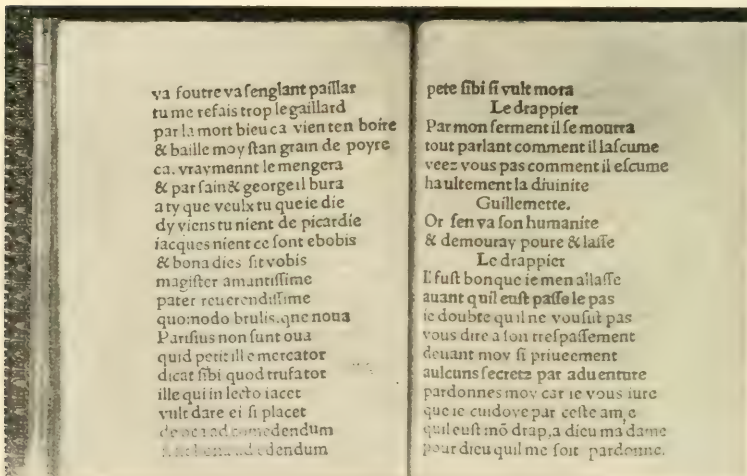 va foutre va ſenglant paillar
tu me refais trop le gaillard
par la mort bieu ca vien ten boire
& baille moy ſtan grain de poyre
ca. vraymennt le mengera
& par ſain & george il bura
a ty que veulx tu que ie die
dy viens tu nient de picardie
iacques nient ce ſont ebobis
& bona dies ſit vobis
magiſter amantiſſime
pater reuerendiſſime
quomodo brulis. que noua
Pariſius non ſunt oua
quid petit ille mercator
dicat ſibi quod trufator
ille qui in lecto iacet
vult dare ei ſi placet
de oca ad comedendum
ad edendum
pete ſibi ſi vult mora
Le drappier
Par mon ſerment il ſe mourra
tout parlant comment il laſcume
veez vous pas comment il eſcume
haultement la diuinite
Guillemette.
Or ſen va ſon humanite
& demouray poure & laſſe
Le drappier
Il fuſt bon que ie men allaſſe
auant quil euſt paſſe le pas
ie doubte quil ne vouſiſt pas
vous dire a ſon treſpaſſement
deuant moy ſi priueement
aulcuns ſecretz par aduenture
pardonnes moy car ie vous iure
que ie cuidoye par ceſte ame
quil euſt mõ drap, a dieu ma dame
pour dieu quil me ſoit pardonne.